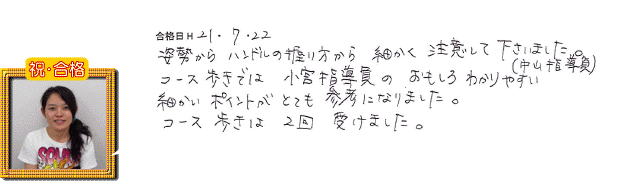 合格日 H 21・7・22
姿勢から ハンドルの握り方から 細かく 注意して 下さいました。
(中山指導員)
コース歩きでは 小宮指導員の おもしろ わかりやすい
細かい ポイントが とても 参考になりました。
コース 歩きは 2回 受けました。
祝・合格